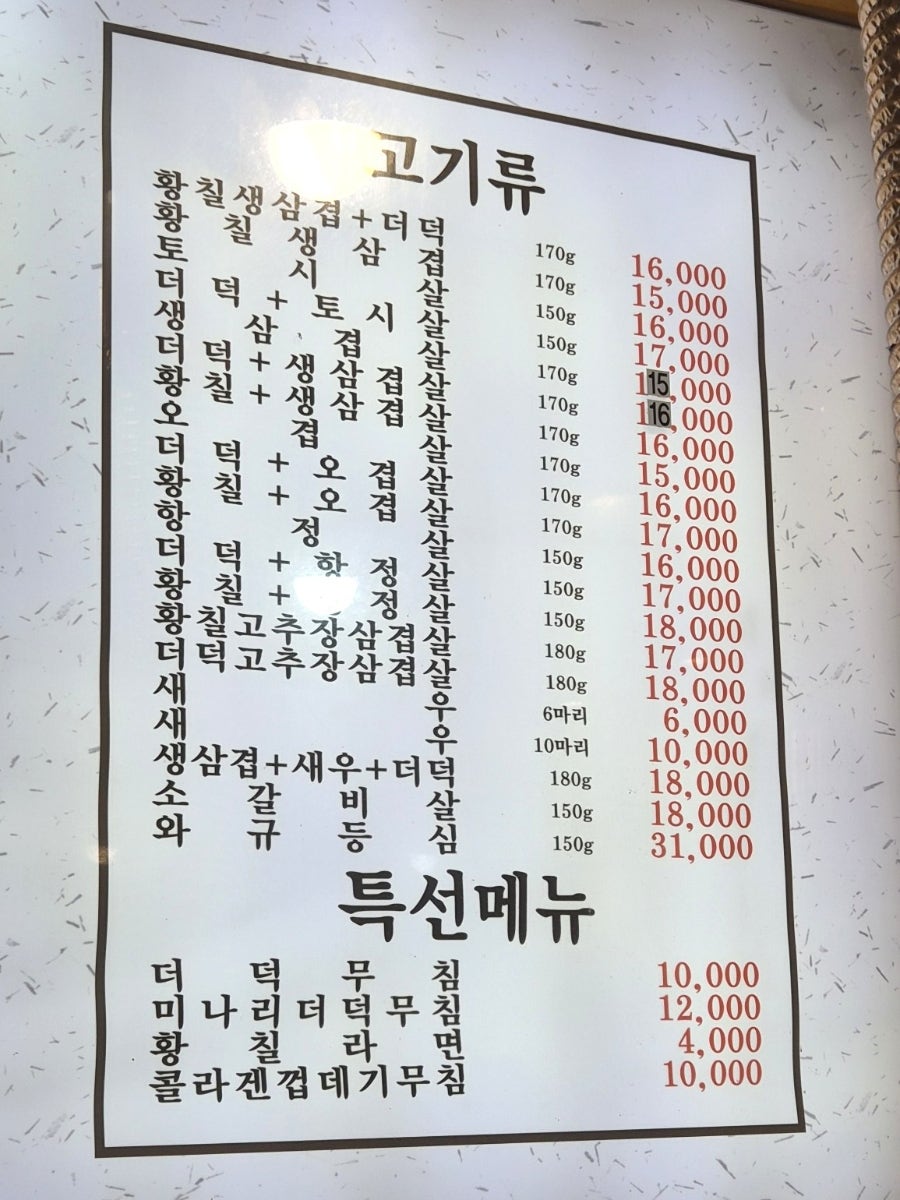 고기류
황칠생삼겹+더덕 170g 16,000
황칠생삼겹 170g 15,000
토시살 150g 16,000
더덕+토시살 150g 17,000
생삼겹살 170g 15,000
더덕+생삼겹살 170g 16,000
황칠+생삼겹살 170g 16,000
오겹살 170g 15,000
더덕+오겹살 170g 16,000
황칠+오겹살 170g 17,000
항정살 150g 16,000
더덕+항정살 150g 17,000
황칠+ 정살 150g 18,000
황칠고추장삼겹살 180g 17,000
더덕고추장삼겹살 180g 18,000
새우 6마리 6,000
새우 10마리 10,000
생삼겹+새우+더덕 180g 18,000
소갈비살 150g 18,000
와규등심 150g 31,000
특선메뉴
더덕무침 10,000
미나리더덕무침 12,000
황칠라면 4,000
콜라겐껍데기무침 10,000